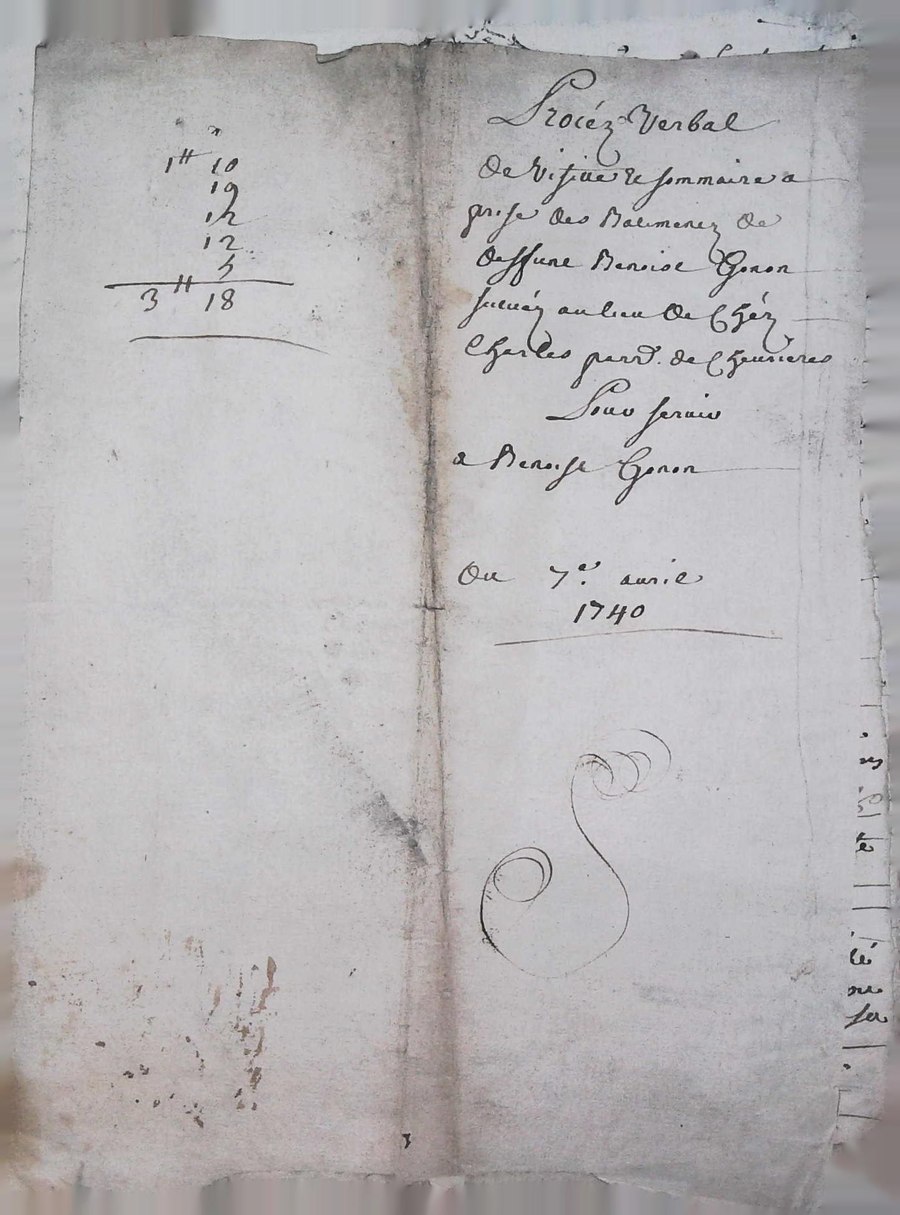 1# 10
19
12
12
5
3# 18
Procéz Verbal
de Visitte et sommaire a
prise des Batimentz de
deffunt Benoist Gonon
scituéz au lieu de Chéz
Charles parr. de Cheurieres
Pour seruir
a Benoist Gonon
Du 7e. auril
1740